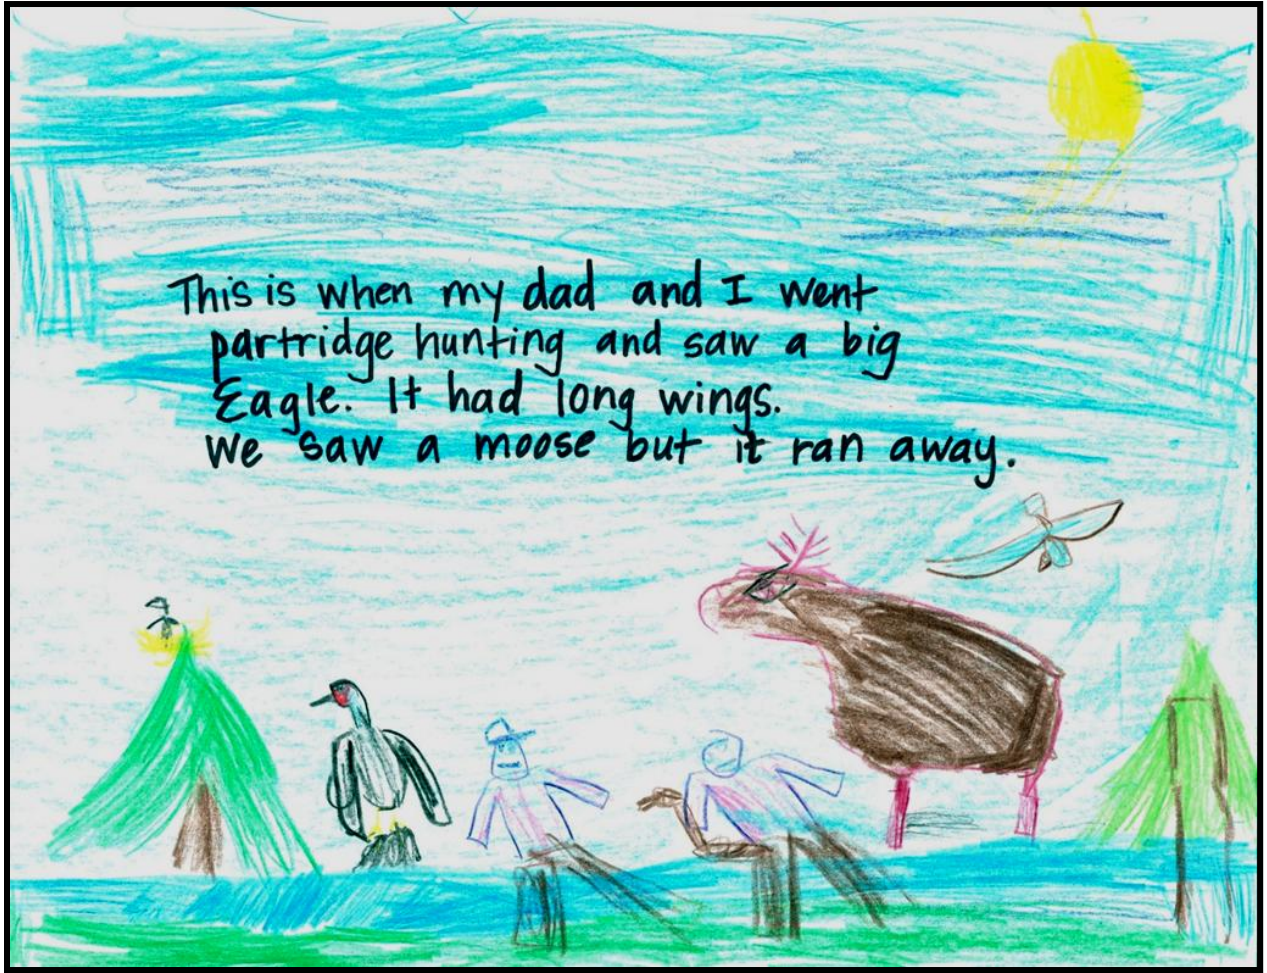 This is when my dad and I went
partridge hunting and saw a big
Eagle. It had long wings.
We saw a moose but it ran away.